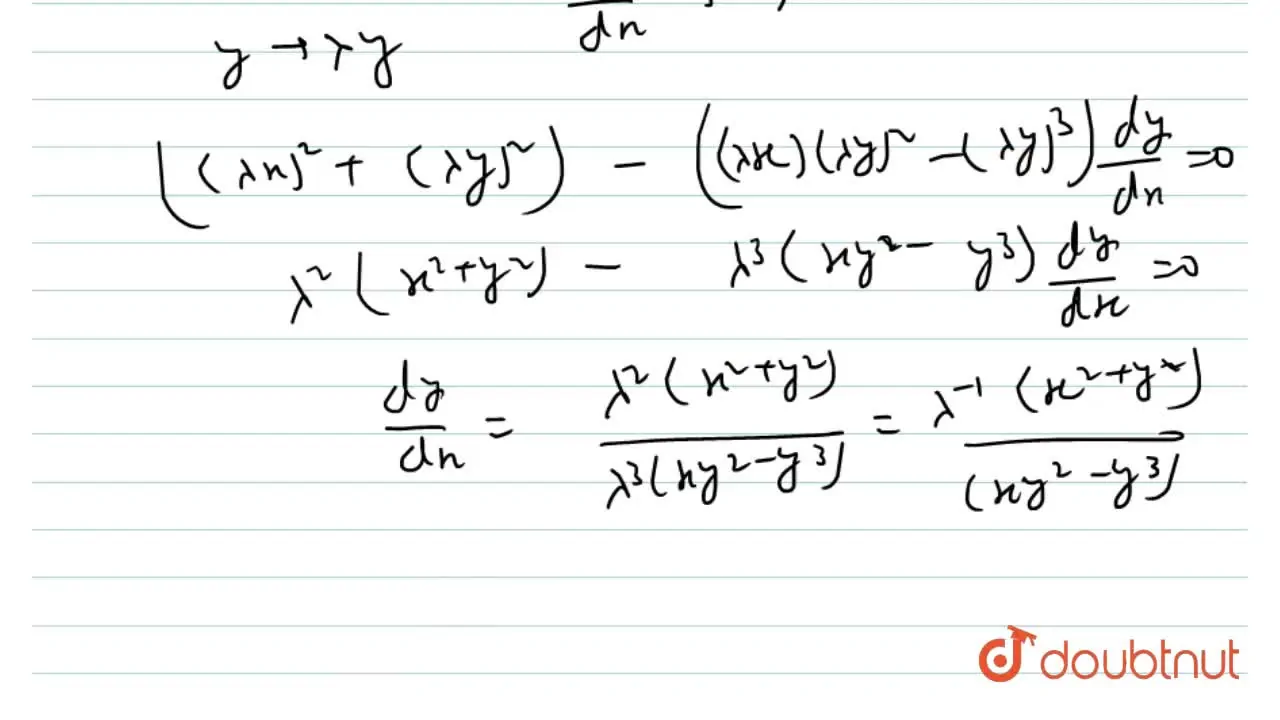 dx
y → λy
((λx)² + (λy)²) - ((λx)(λy)² - (λy)³) dy/dx = 0
λ²(x² + y²) - λ³(xy² - y³) dy/dx = 0
dy/dx = λ²(x² + y²)/λ³(xy² - y³) = λ⁻¹(x² + y²)/(xy² - y³)
doubtnut